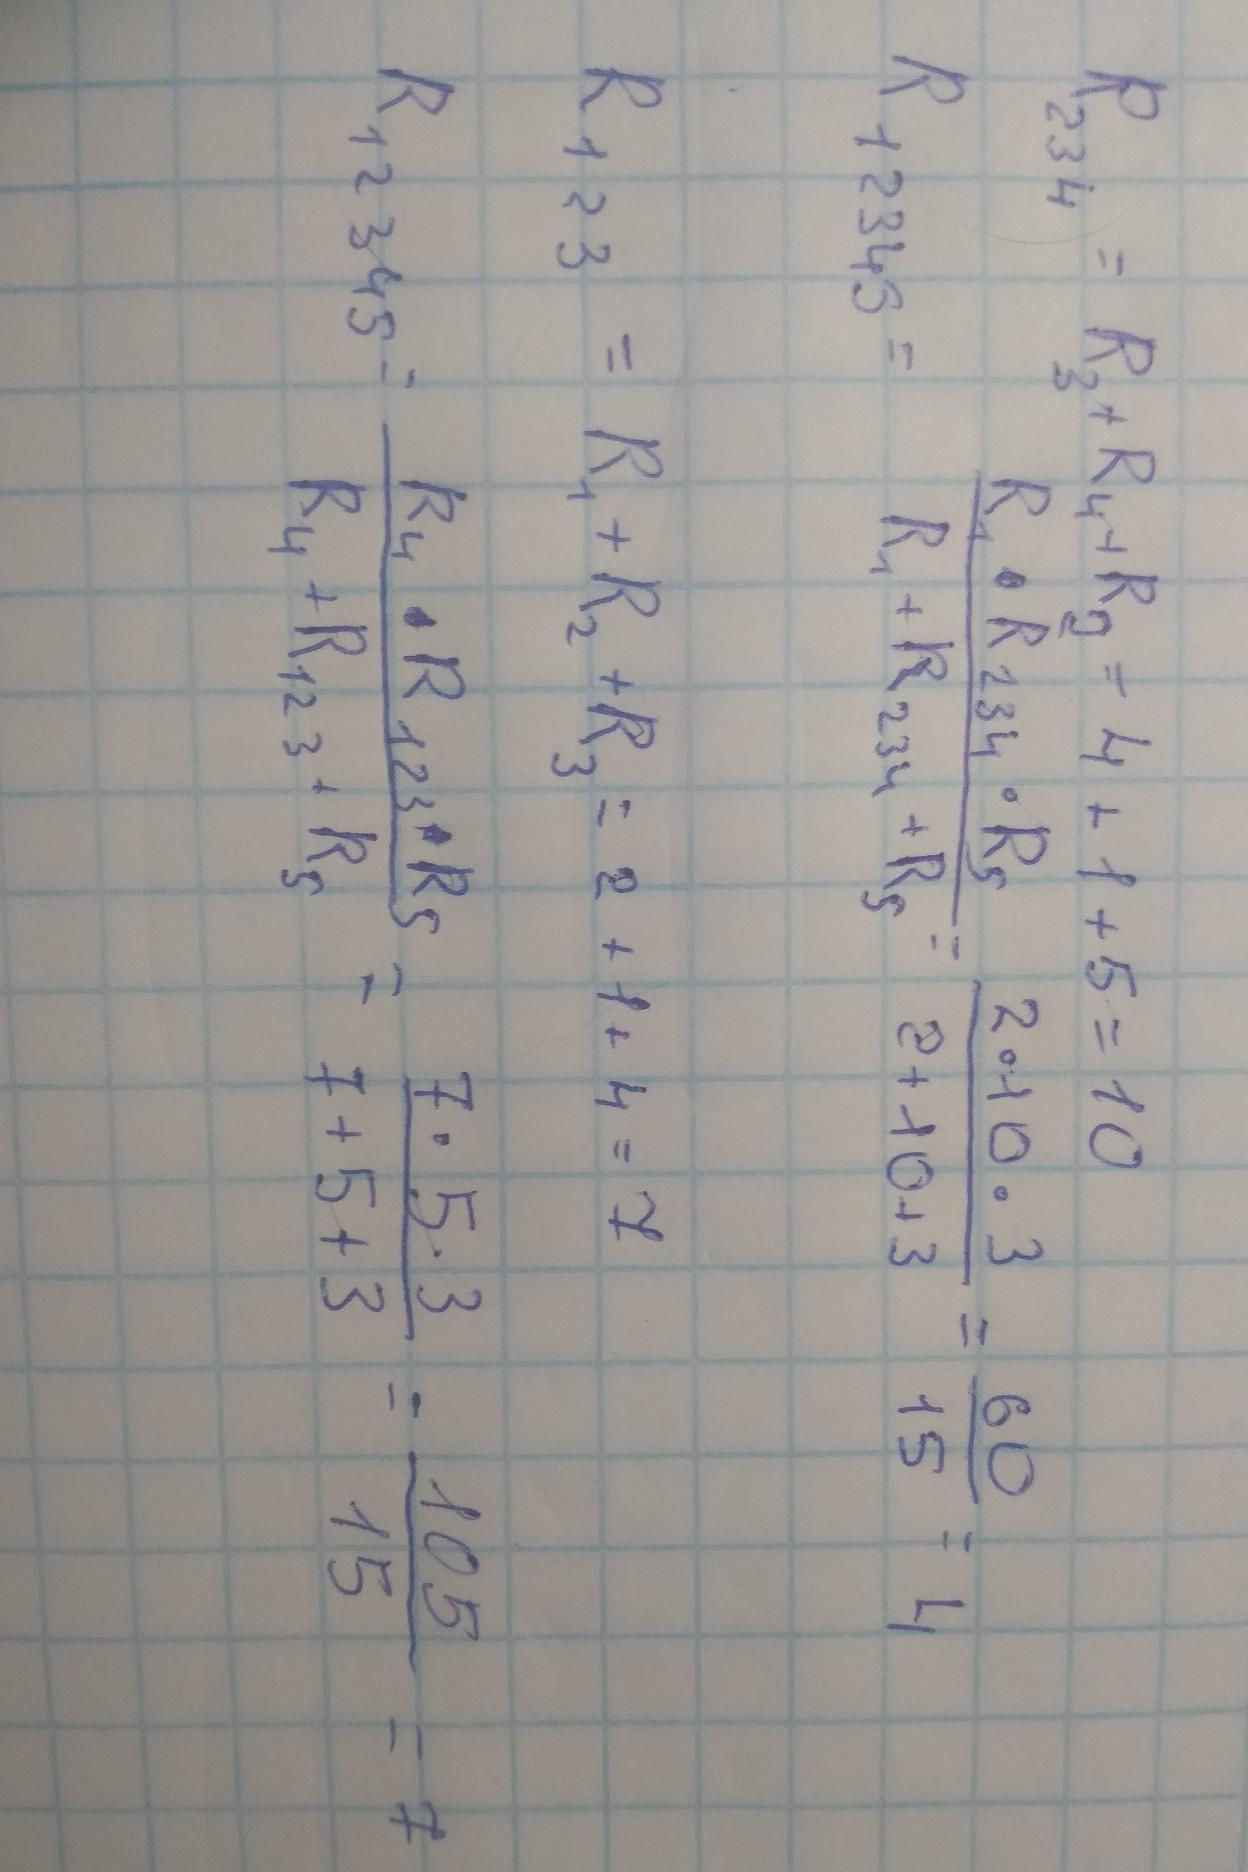 R₂₃₄ = R₃ + R₄ + R₂ = 4 + 1 + 5 = 10
R₁₂₃₄₅ = (R₁ • R₂₃₄ • R₅) / (R₁ + R₂₃₄ + R₅) = (2 • 10 • 3) / (2 + 10 + 3) = 60 / 15 = 4
R₁₂₃ = R₁ + R₂ + R₃ = 2 + 1 + 4 = 7
R₁₂₃₄₅ = (R₄ • R₁₂₃ • R₅) / (R₄ + R₁₂₃ + R₅) = (7 • 5 • 3) / (7 + 5 + 3) = 105 / 15 = 7